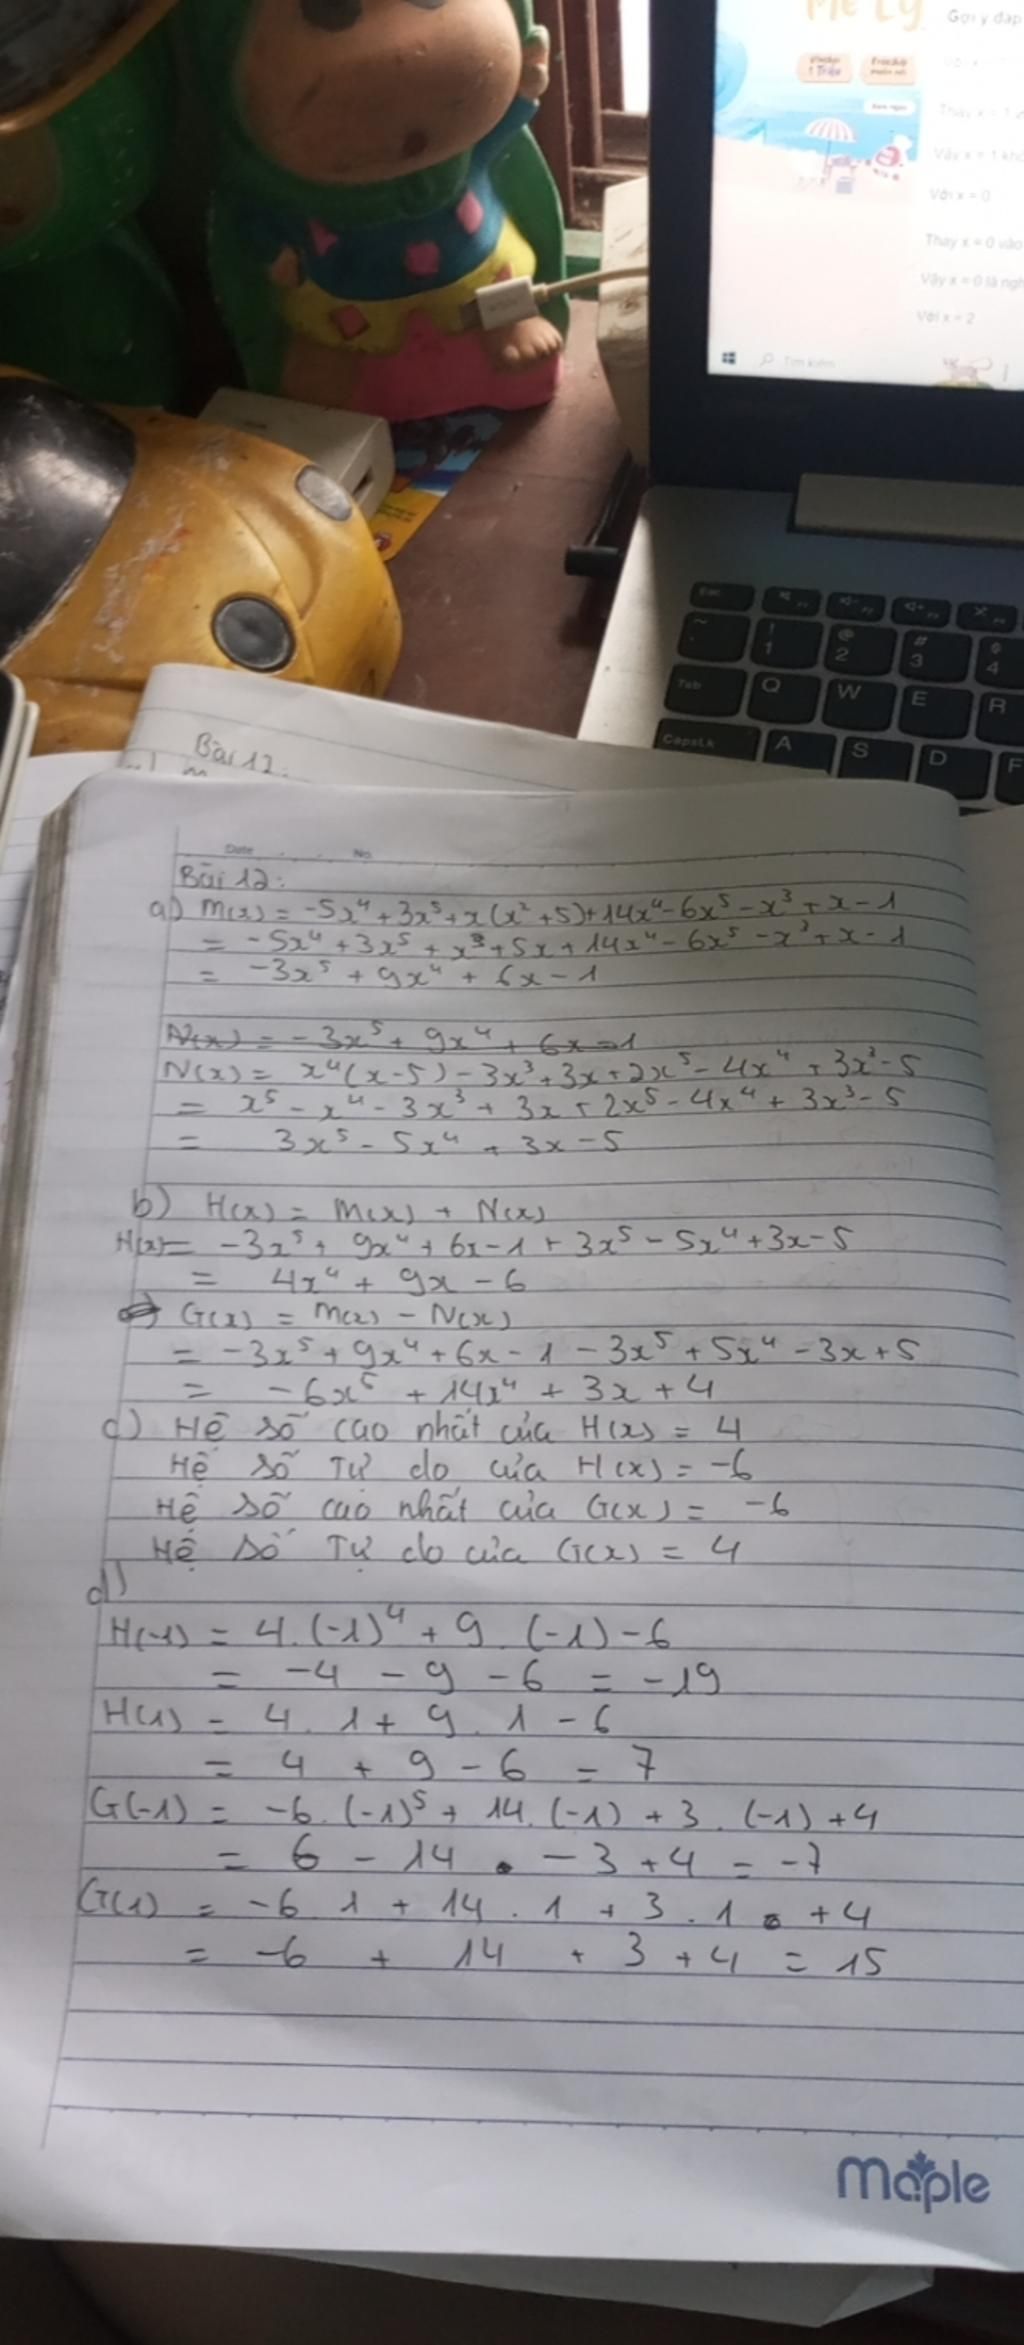 Mẹ Lý
Gợi ý đáp
1 Triệu
Thay x = 1
Vậy x = 1 khô
Với x = 0
Thay x = 0 vào
Vậy x = 0 là ngh
Với x = 2
Tìm kiếm
Esc
~ ! 1 @ 2 # 3 $ 4
Tab Q W E R
CapsLk A S D F
Bài 12:
Date No.
Bài 12:
a) M(x) = -5x⁴ + 3x⁵ + x(x² + 5) + 14x⁴ - 6x⁵ - x³ + x - 1
= -5x⁴ + 3x⁵ + x³ + 5x + 14x⁴ - 6x⁵ - x³ + x - 1
= -3x⁵ + 9x⁴ + 6x - 1
N(x) = -3x⁵ + 9x⁴ + 6x - 1
N(x) = x⁴(x - 5) - 3x³ + 3x + 2x⁵ - 4x⁴ + 3x³ - 5
= x⁵ - x⁴ - 3x³ + 3x + 2x⁵ - 4x⁴ + 3x³ - 5
= 3x⁵ - 5x⁴ + 3x - 5
b) H(x) = M(x) + N(x)
H(x) = -3x⁵ + 9x⁴ + 6x - 1 + 3x⁵ - 5x⁴ + 3x - 5
= 4x⁴ + 9x - 6
G(x) = M(x) - N(x)
= -3x⁵ + 9x⁴ + 6x - 1 - 3x⁵ + 5x⁴ - 3x + 5
= -6x⁵ + 14x⁴ + 3x + 4
c) Hệ số cao nhất của H(x) = 4
Hệ số Tự do của H(x) = -6
Hệ số cao nhất của G(x) = -6
Hệ số Tự do của G(x) = 4
d)
H(-1) = 4.(-1)⁴ + 9.(-1) - 6
= -4 - 9 - 6 = -19
H(1) = 4.1 + 9.1 - 6
= 4 + 9 - 6 = 7
G(-1) = -6.(-1)⁵ + 14.(-1) + 3.(-1) + 4
= 6 - 14 - 3 + 4 = -7
G(1) = -6.1 + 14.1 + 3.1 + 4
= -6 + 14 + 3 + 4 = 15
Maple